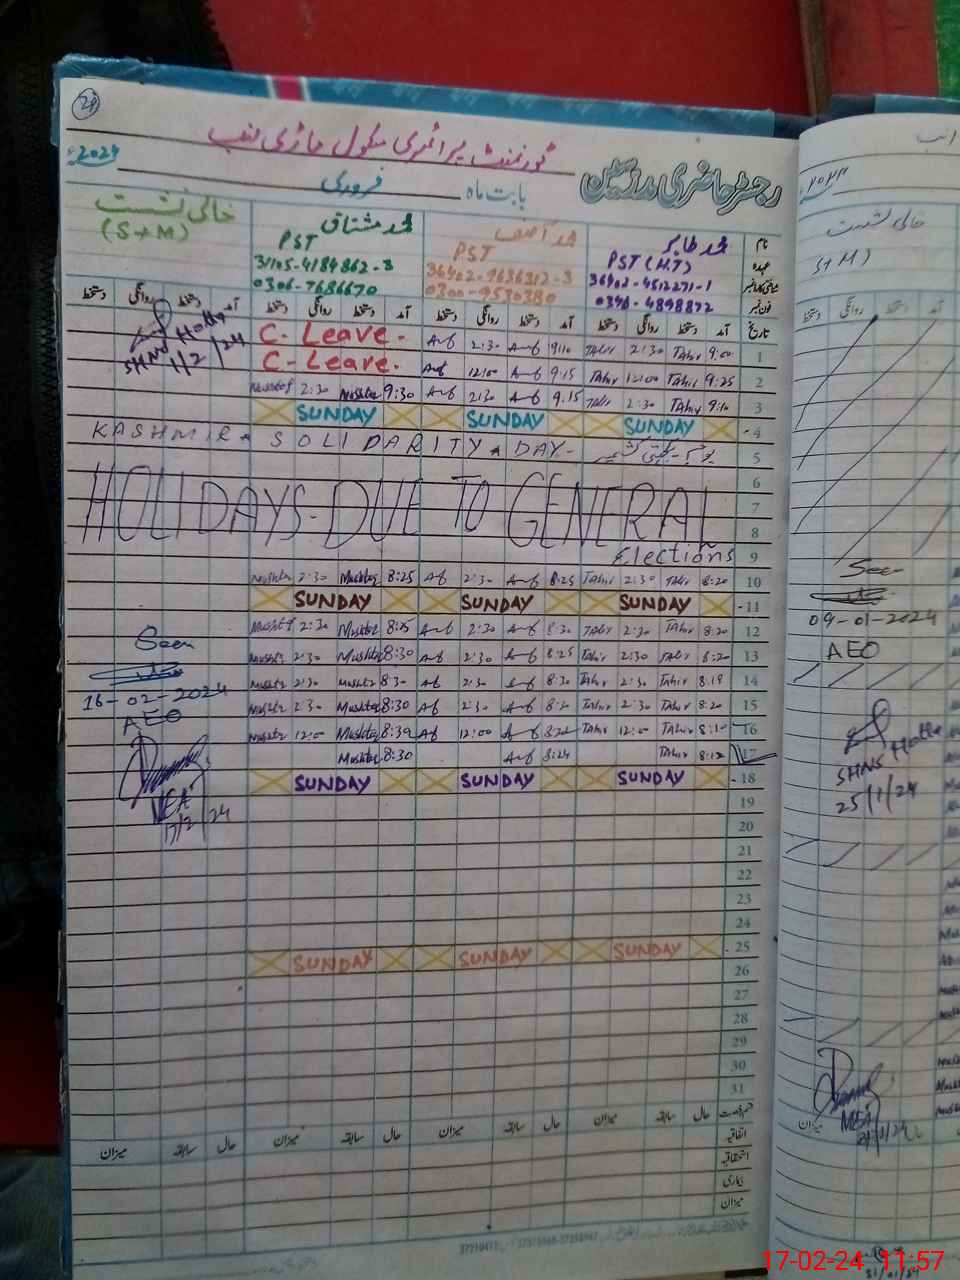 21
گورنمنٹ پرائمری سکول
رجسٹر حاضری مدرسین
بابت ماہ فروری 2024ء
نام محمد طاہر محمد آصف محمد مشتاق خالی نشست
عہدہ PST (H.T) PST PST (S+M)
36402-4512271-1 36402-9636312-3 31105-4184862-3
فون نمبر 0346-4898872 0300-9530380 0306-7686670
تاریخ آمد دستخط روانگی دستخط آمد دستخط روانگی دستخط آمد دستخط روانگی دستخط آمد دستخط روانگی دستخط
1 9:00 Tahir 2:30 Tahir 9:10 Asif 2:30 Asif C-Leave.
2 9:25 Tahir 12:00 Tahir 9:15 Asif 12:00 Asif C-Leave.
3 9:10 Tahir 2:30 Tahir 9:15 Asif 2:30 Asif 9:30 Mushtaq 2:30 Mushtaq
SHNS
1/2/24
4 SUNDAY SUNDAY SUNDAY
5 KASHMIR SOLIDARITY DAY- یوم یکجہتی کشمیر
6
7 HOLIDAYS-DUE TO GENERAL
8
9 Elections
10 8:20 Tahir 2:30 Tahir 8:25 Asif 2:30 Asif 8:25 Mushtaq 2:30 Mushtaq
11 SUNDAY SUNDAY SUNDAY
12 8:20 Tahir 2:30 Tahir 8:30 Asif 2:30 Asif 8:25 Mushtaq 2:30 Mushtaq
13 8:20 Tahir 2:30 Tahir 8:25 Asif 2:30 Asif 8:30 Mushtaq 2:30 Mushtaq
14 8:19 Tahir 2:30 Tahir 8:30 Asif 2:30 Asif 8:30 Mushtaq 2:30 Mushtaq
15 8:20 Tahir 2:30 Tahir 8:20 Asif 2:30 Asif 8:30 Mushtaq 2:30 Mushtaq
16 8:10 Tahir 12:00 Tahir Asif 12:00 Asif 8:30 Mushtaq 12:00 Mushtaq
17 8:12 Tahir 8:24 Asif 8:30 Mushtaq
18 SUNDAY SUNDAY SUNDAY
Seen
16-02-2024
AEO
MEA
17/2/24
19
20
21
22
23
24
25 SUNDAY SUNDAY SUNDAY
26
27
28
29
30
31
قسم رخصت حال سابقہ میزان حال سابقہ میزان حال سابقہ میزان
اتفاقیہ
استحقاقیہ
بیماری
میزان
خالی نشست
(S+M)
Seen
09-01-2024
AEO
SHNS
25/1/24
MEA
میزان
17-02-24 11:57